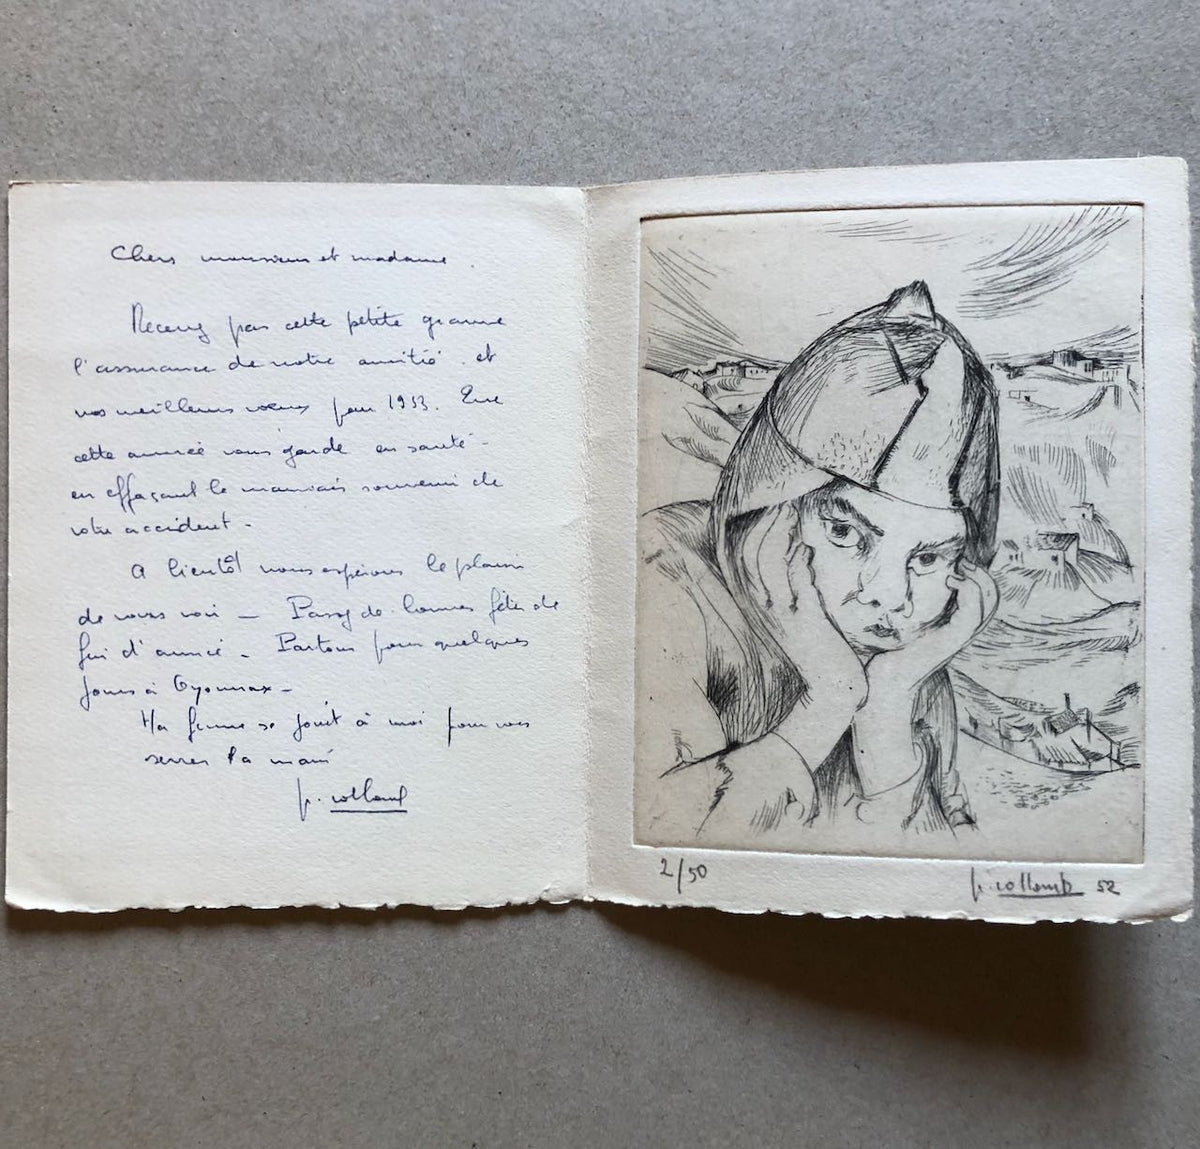 Chers monsieur et madame.
Recevez par cette petite gravure
l'assurance de notre amitié et
nos meilleurs vœux pour 1953. Que
cette année vous garde en santé -
en effaçant le mauvais souvenir de
votre accident -
A bientôt nous espérons le plaisir
de vous voir - Passez de bonnes fêtes de
fin d'année - Partons pour quelques
jours à Oyonnax -
Ma femme se joint à moi pour vous
serrer la main
2/50
52